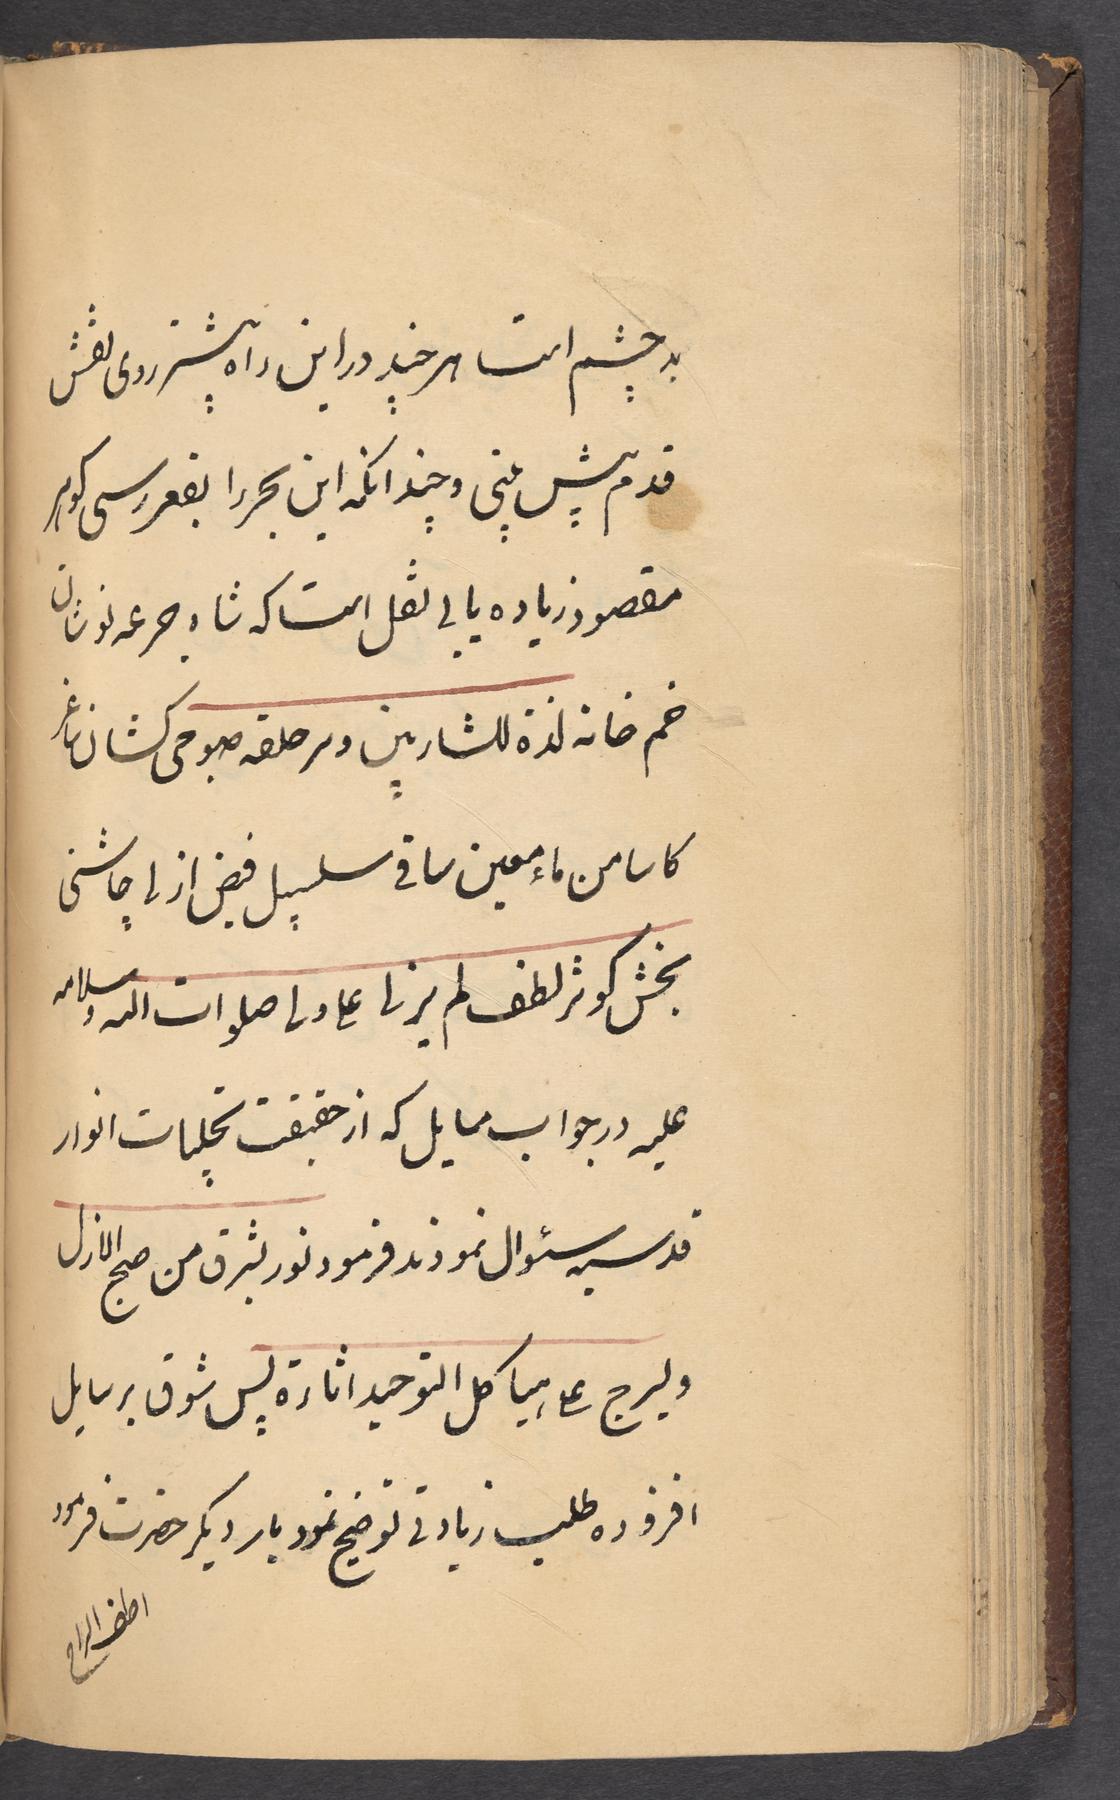 بد چشم است هر چند در این راه پیشتر روی نقش
قدم پیش بینی و چندانکه این بحر را بقعر رسی گوهر
مقصود زیاده یابی نقل است که شاه جرعه نوشان
خم خانه لذة للشاربین و سر حلقه صبوحی کشان ساغر
کاسا من ماء معین ساقی سلسبیل فیض ازلی چاشنی
بخش کوثر لطف لم یزلی علی ولی صلوات الله و سلامه
علیه در جواب سایل که از حقیقت تجلیات انوار
قدسیه سئوال نمودند فرمود نور یشرق من صبح الازل
و لیرج علی هیاکل التوحید اثاره پس شوق بر سایل
افزوده طلب زیادتی توضیح نمود بار دیگر حضرت فرمود
اطف السراج